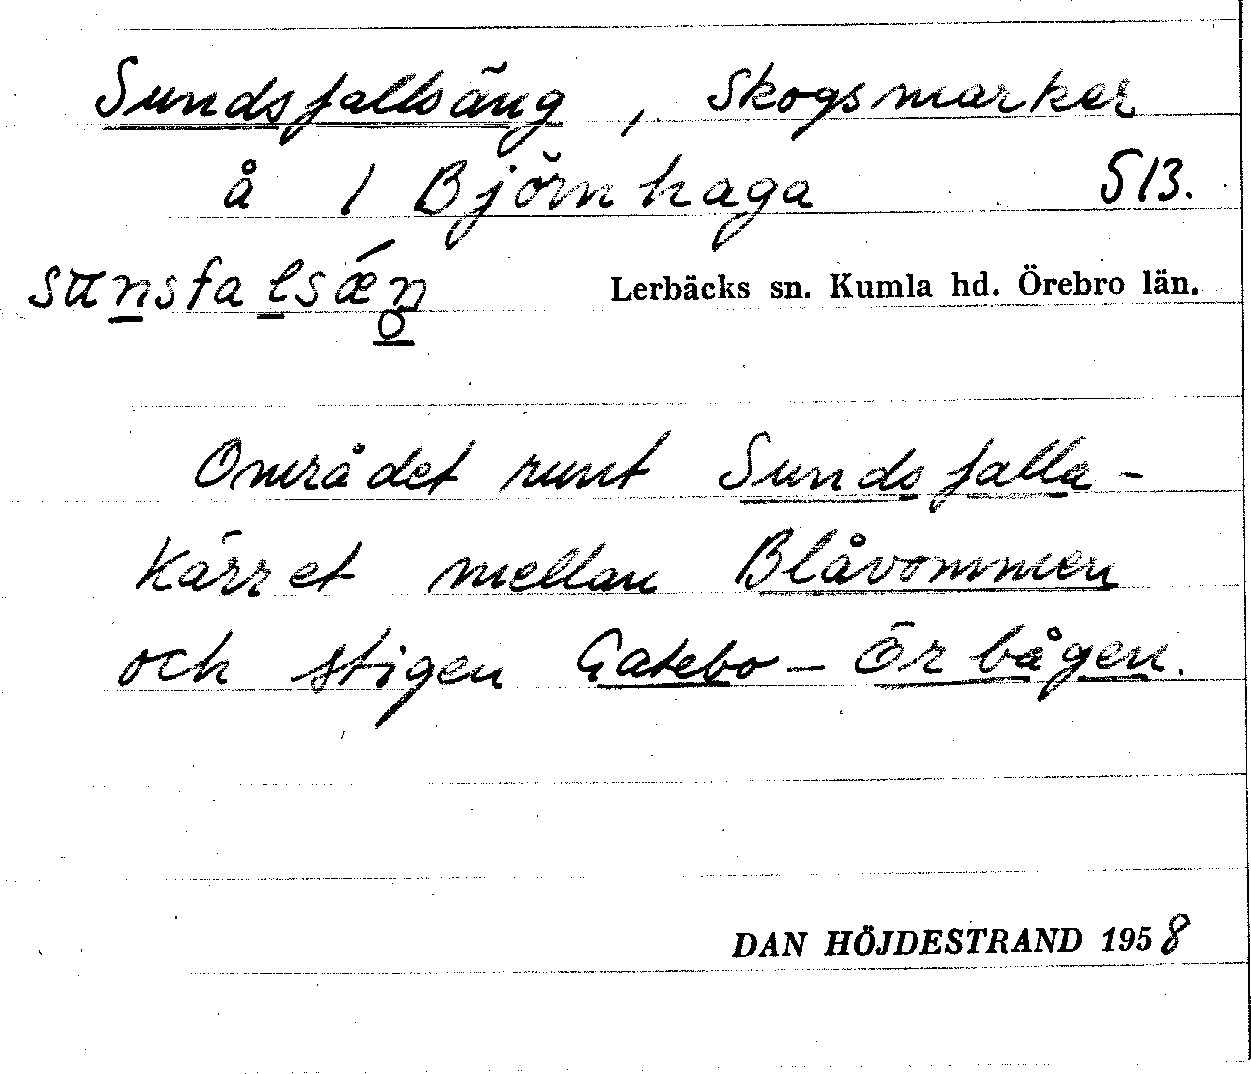 Sundsfallsäng, Skogsmarker
å 1 Björnhaga S13.
Lerbäcks sn. Kumla hd. Örebro län.
Området runt Sundsfalla-
kärret mellan Blåvommen
och stigen Gatebo – Örbågen.
DAN HÖJDESTRAND 1958